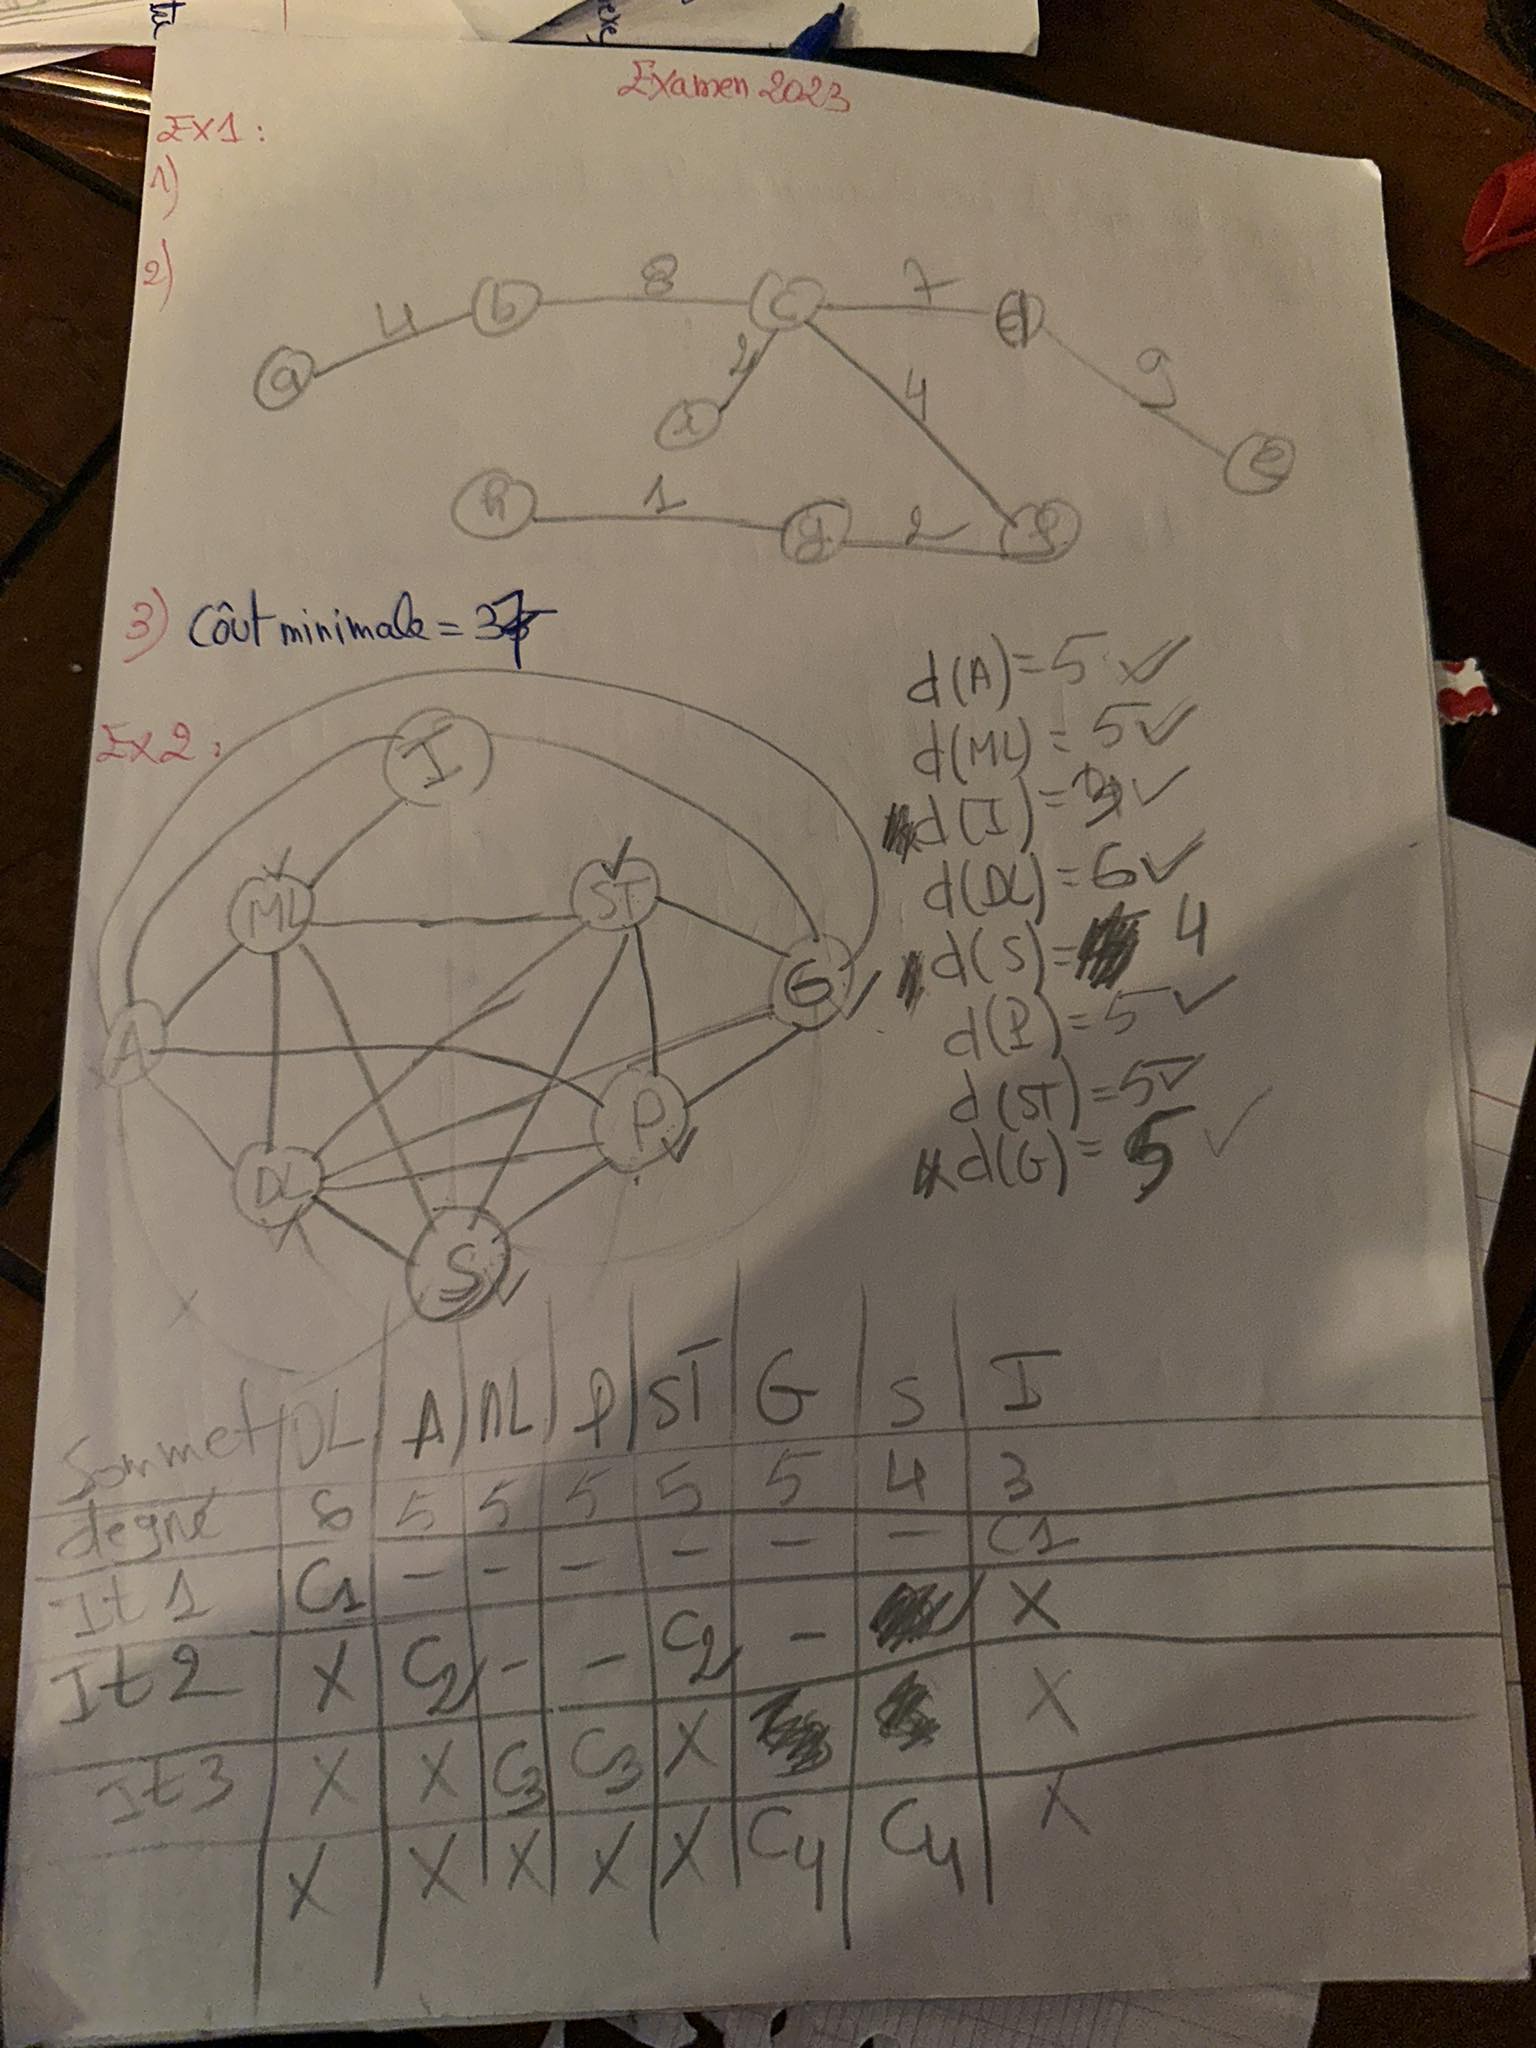 Examen 2023
EX1 :
1)
2)
a 4 b 8 c 7 d 9 e
i 2 4
h 1 g 2 f
3) Coût minimale = 37
Ex2 :
I
ML ST
G
A
P
DL
S
d(A) = 5 ✓
d(ML) = 5 ✓
d(I) = 3 ✓
d(DL) = 6 ✓
d(S) = 4
d(P) = 5 ✓
d(ST) = 5 ✓
d(G) = 5 ✓
Sommet DL A ML P ST G S I
degré 6 5 5 5 5 5 4 3
It 1 C1 - - - - - - C1
It 2 X C2 - - C2 - X
It 3 X X C3 C3 X X
X X X X X C4 C4 X